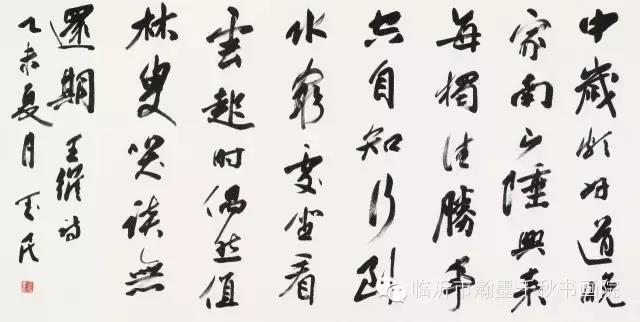 中歲頗好道晚
家南山陲興來
每獨往勝事
空自知行到
水窮處坐看
雲起時偶然值
林叟笑談無
還期 王維詩
乙未夏月
临沂市瀚墨千秋书画院